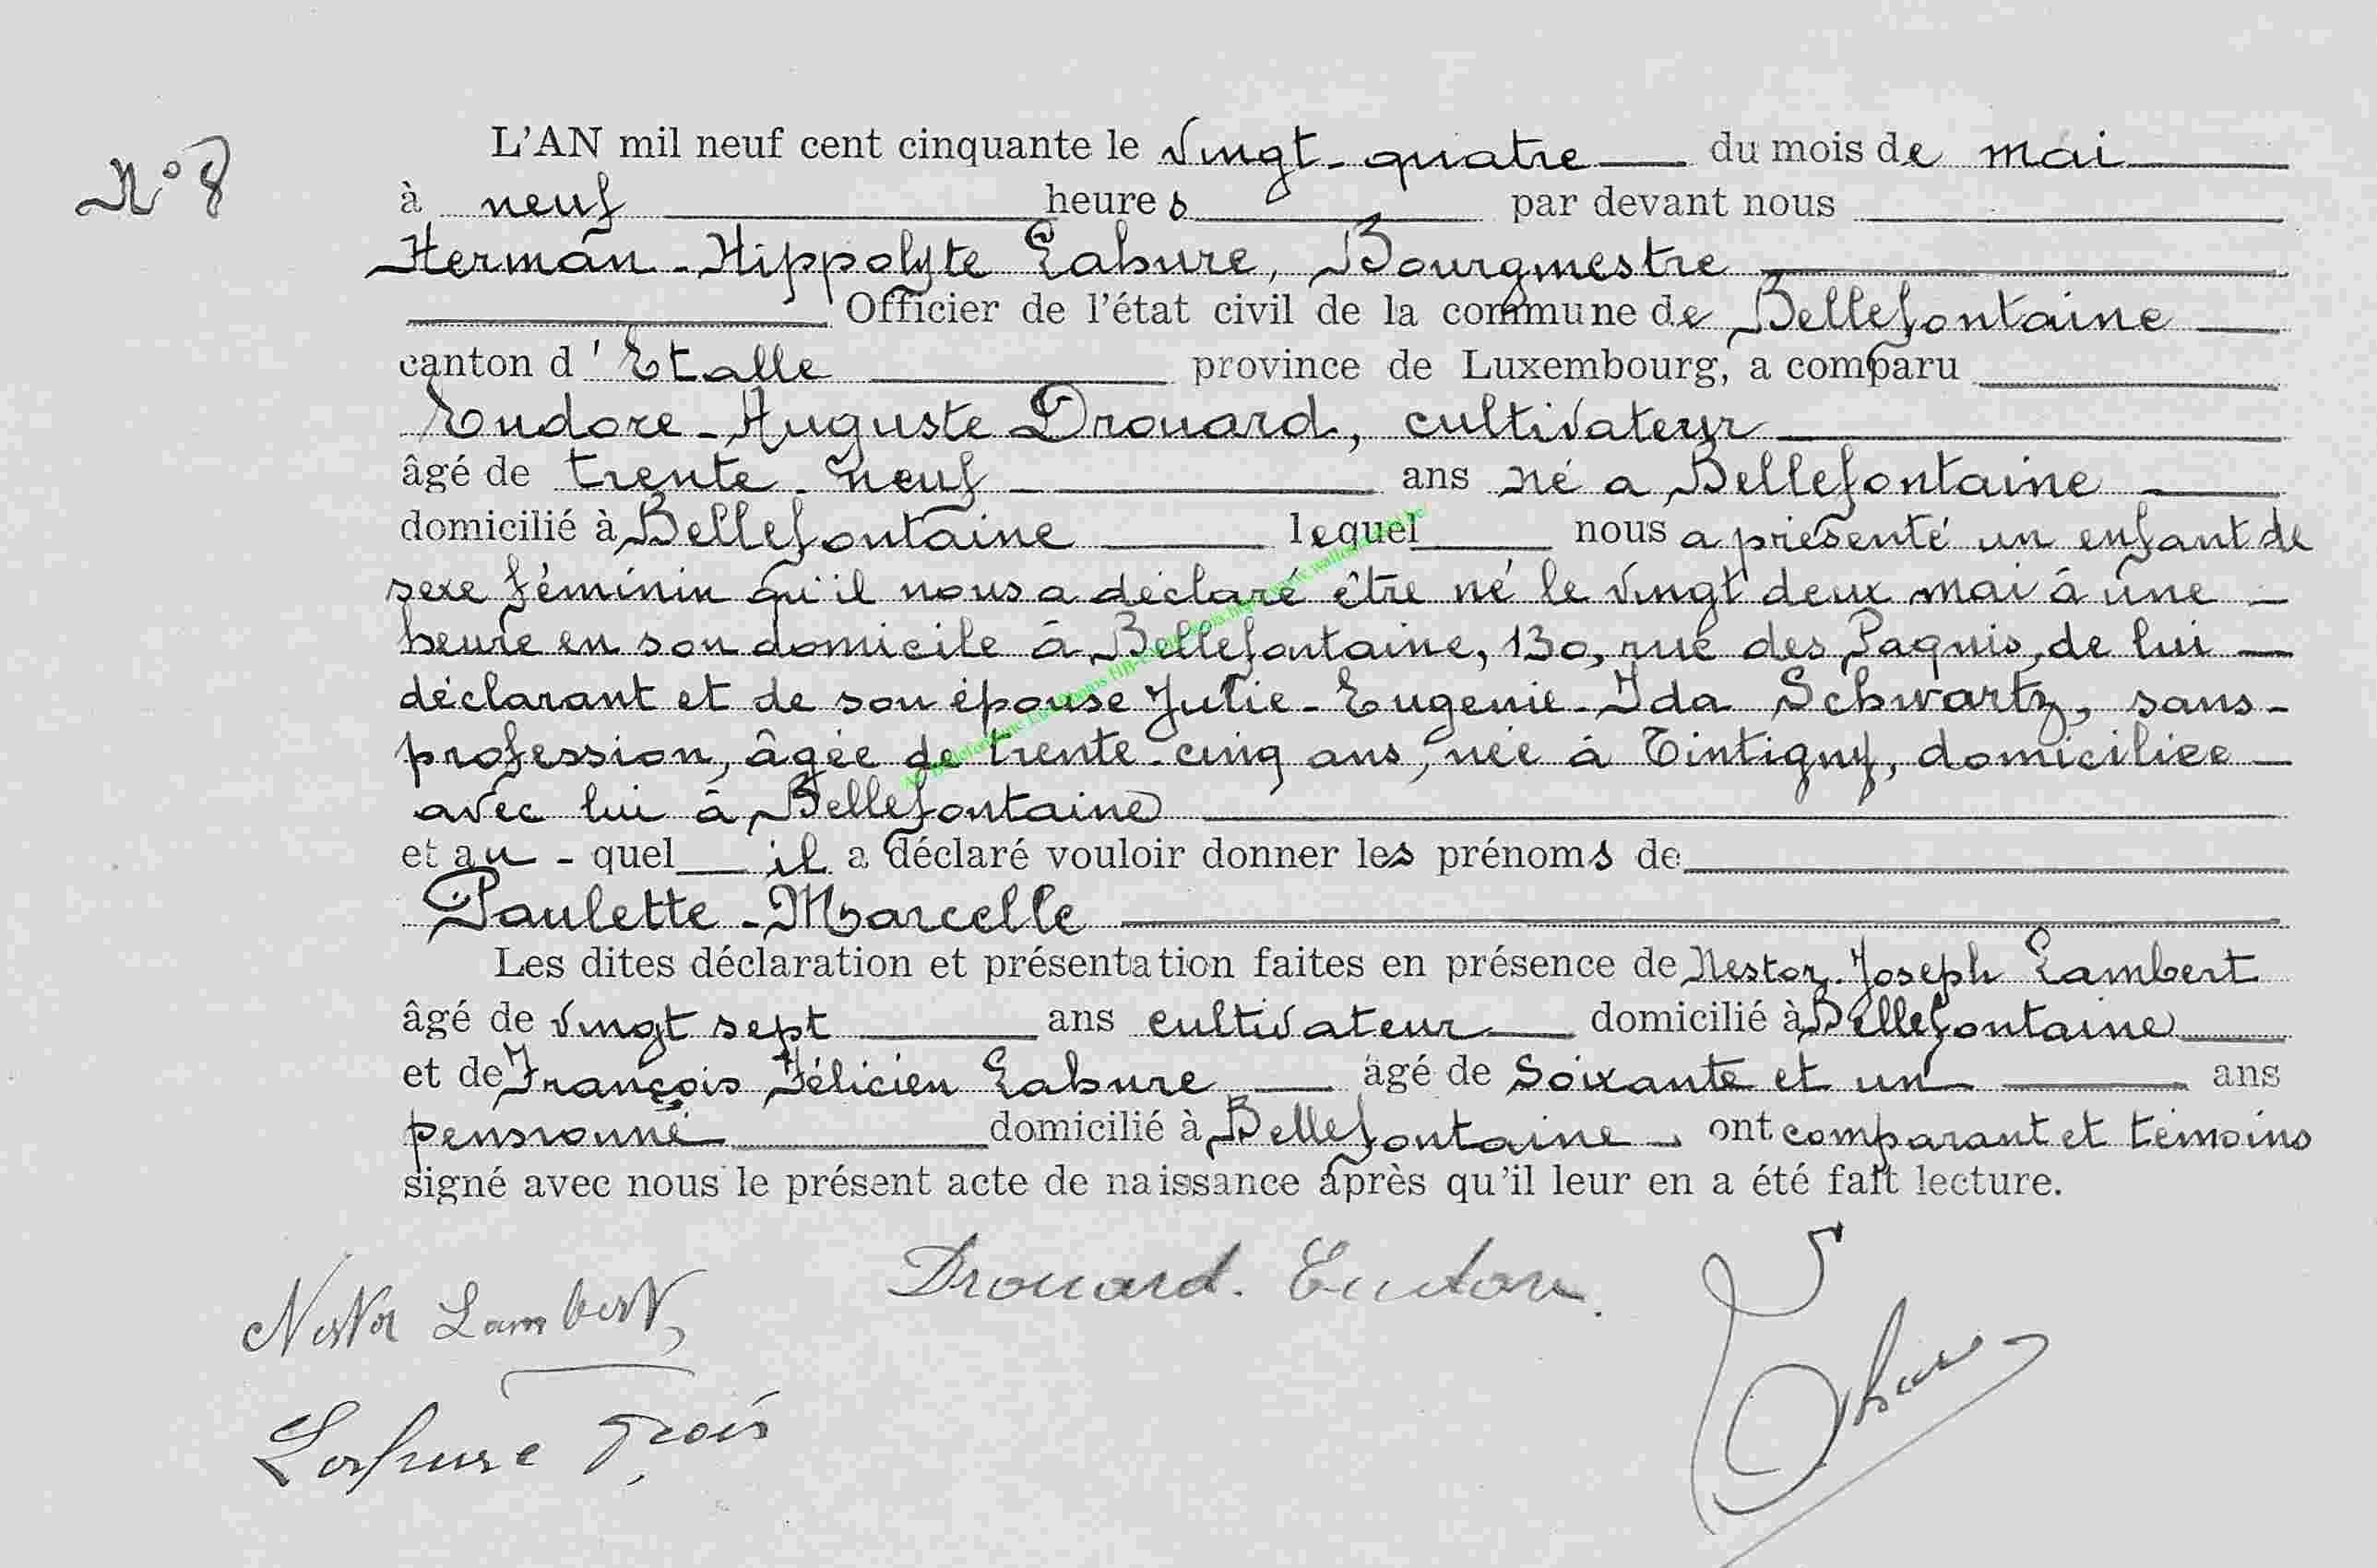 N° 8
L'AN mil neuf cent cinquante le vingt-quatre du mois de mai
à neuf heures par devant nous
Herman-Hippolyte Lahure, Bourgmestre
Officier de l'état civil de la commune de Bellefontaine
canton d'Etalle province de Luxembourg, a comparu
Eudore-Auguste Drouard, cultivateur
âgé de trente-neuf ans né a Bellefontaine
domicilié à Bellefontaine lequel nous a présenté un enfant de
sexe féminin qu'il nous a déclaré être né le vingt deux mai à une
heure en son domicile à Bellefontaine, 130, rue des Paquis, de lui
déclarant et de son épouse Julie-Eugenie-Ida Schwartz, sans-
profession, âgée de trente-cinq ans, née à Tintigny, domiciliée
avec lui à Bellefontaine
et au-quel il a déclaré vouloir donner les prénoms de
Paulette-Marcelle
Les dites déclaration et présentation faites en présence de Nestor-Joseph Lambert
âgé de vingt sept ans cultivateur domicilié à Bellefontaine
et de François Félicien Lahure âgé de soixante et un ans
pensionné domicilié à Bellefontaine, ont comparant et témoins
signé avec nous le présent acte de naissance après qu'il leur en a été fait lecture.
Drouard. Eudore.
Nestor Lambert
Lahure Fçois
Lahure